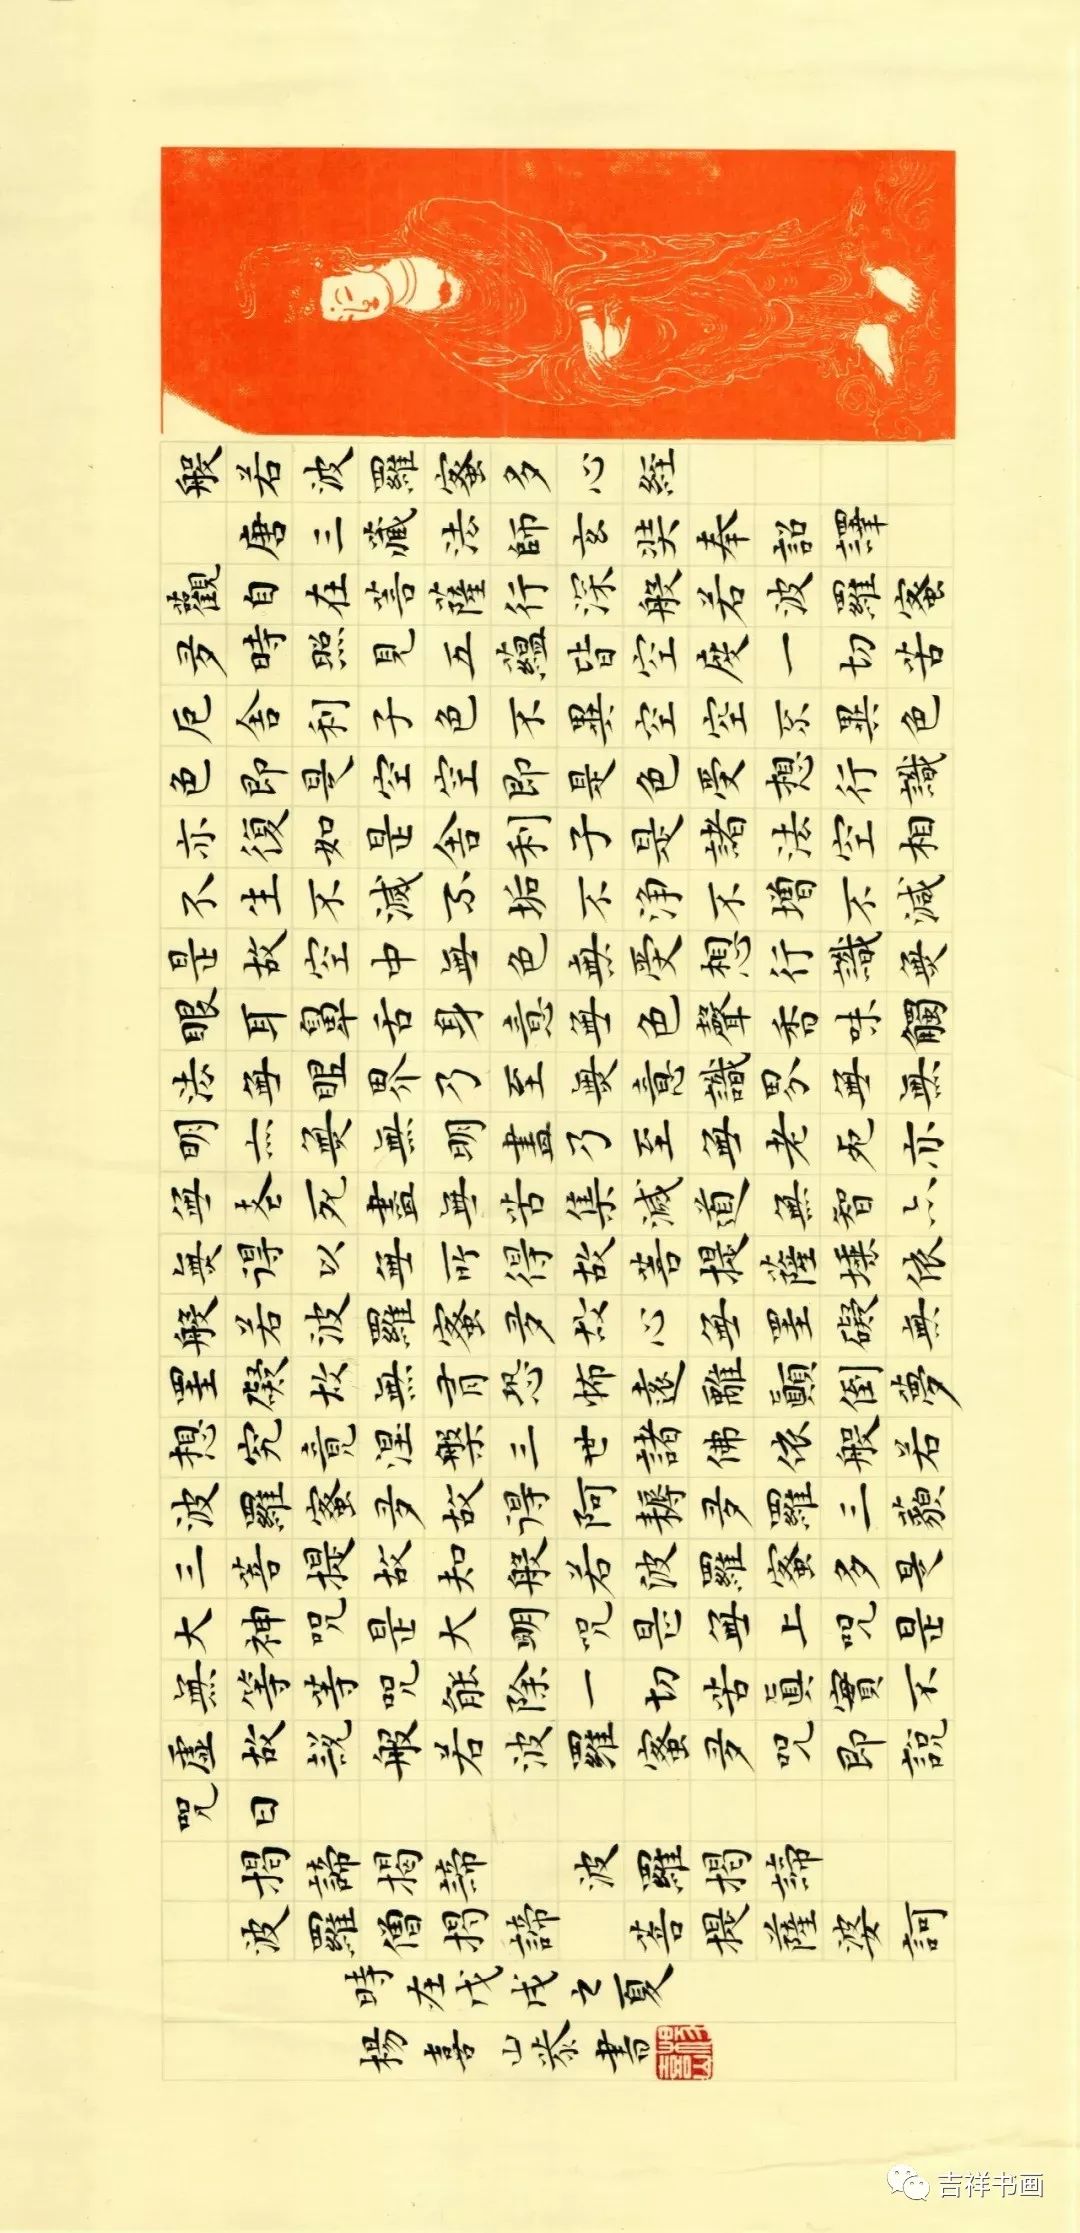 般若波羅蜜多心經
唐三藏法師玄奘奉詔譯
觀自在菩薩行深般若波羅蜜
多時照見五蘊皆空度一切苦
厄舍利子色不異空空不異色
色即是空空即是色受想行識
亦復如是舍利子是諸法空相
不生不滅不垢不淨不增不減
是故空中無色無受想行識無
眼耳鼻舌身意無色聲香味觸
法無眼界乃至無意識界無無
明亦無無明盡乃至無老死亦
無老死盡無苦集滅道無智亦
無得以無所得故菩提薩埵依
般若波羅蜜多故心無罣礙無
罣礙故無有恐怖遠離顛倒夢
想究竟涅槃三世諸佛依般若
波羅蜜多故得阿耨多羅三藐
三菩提故知般若波羅蜜多是
大神咒是大明咒是無上咒是
無等等咒能除一切苦真實不
虛故說般若波羅蜜多咒即說
咒曰
揭諦揭諦 波羅揭諦
波羅僧揭諦 菩提薩婆訶
時在戊戌之夏
楊喜山恭書
吉祥书画